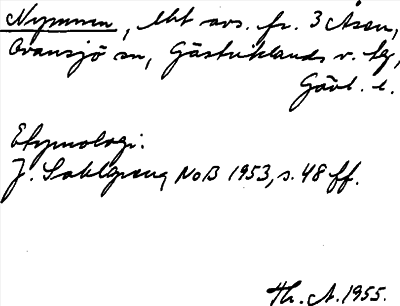 Nymmen, lht avs. fr. 3 Åsen,
Ovansjö sn, Gästriklands v. tg,
Gävl. l.
Etymologi:
J. Sahlgren NoB 1953, s. 48 ff.
Th. A. 1955.